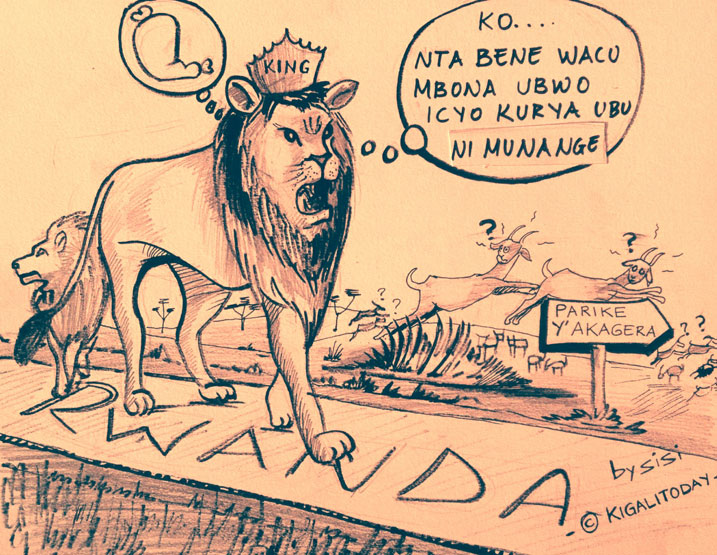 KING
KO....
NTA BENE WACU
MBONA UBWO
ICYO KURYA UBU
NI MUNANGE
?
?
? ?
PARIKE
Y'AKAGERA
? ?
RWANDA
by sisi
© KIGALITODAY